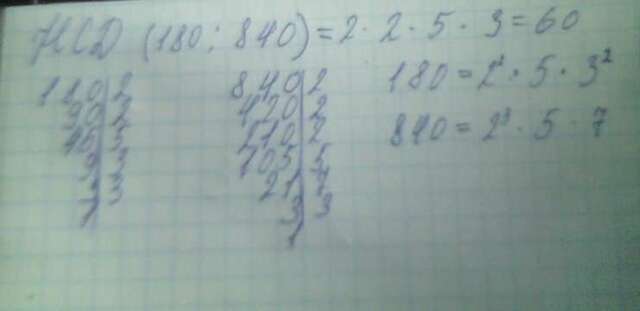 НСД (180; 840) = 2 · 2 · 5 · 3 = 60
180 2
90 2
45 5
9 3
3 3
1
840 2
420 2
210 2
105 5
21 7
3 3
1
180 = 2² · 5 · 3²
840 = 2³ · 5 · 7